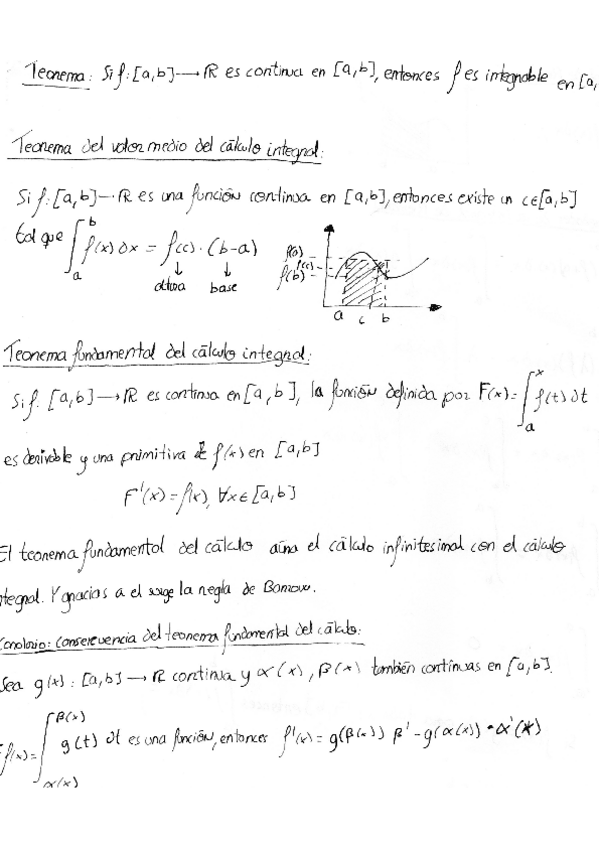 Teorema: Si f: [a,b] → ℝ es continua en [a,b], entonces f es integrable en [a,
Teorema del valor medio del cálculo integral:
Si f: [a,b] → ℝ es una función continua en [a,b], entonces existe un c∈[a,b]
tal que ∫_a^b f(x) dx = f(c) · (b-a)
↓ ↓
altura base
f(a)
f(c)
f(b)
a c b
Teorema fundamental del cálculo integral:
Si f: [a,b] → ℝ es continua en [a,b], la función definida por F(x) = ∫_a^x f(t) dt
es derivable y una primitiva de f(x) en [a,b]
F'(x) = f(x), ∀x∈[a,b]
El teorema fundamental del cálculo aúna el cálculo infinitesimal con el cálculo
ntegral. Y gracias a el surge la regla de Barrow.
Corolario: Consecuencia del teorema fundamental del cálculo:
Sea g(x): [a,b] → ℝ continua y α(x), β(x) también continuas en [a,b].
f(x) = ∫_α(x)^β(x) g(t) dt es una función, entonces f'(x) = g(β(x)) β' - g(α(x)) · α'(x)